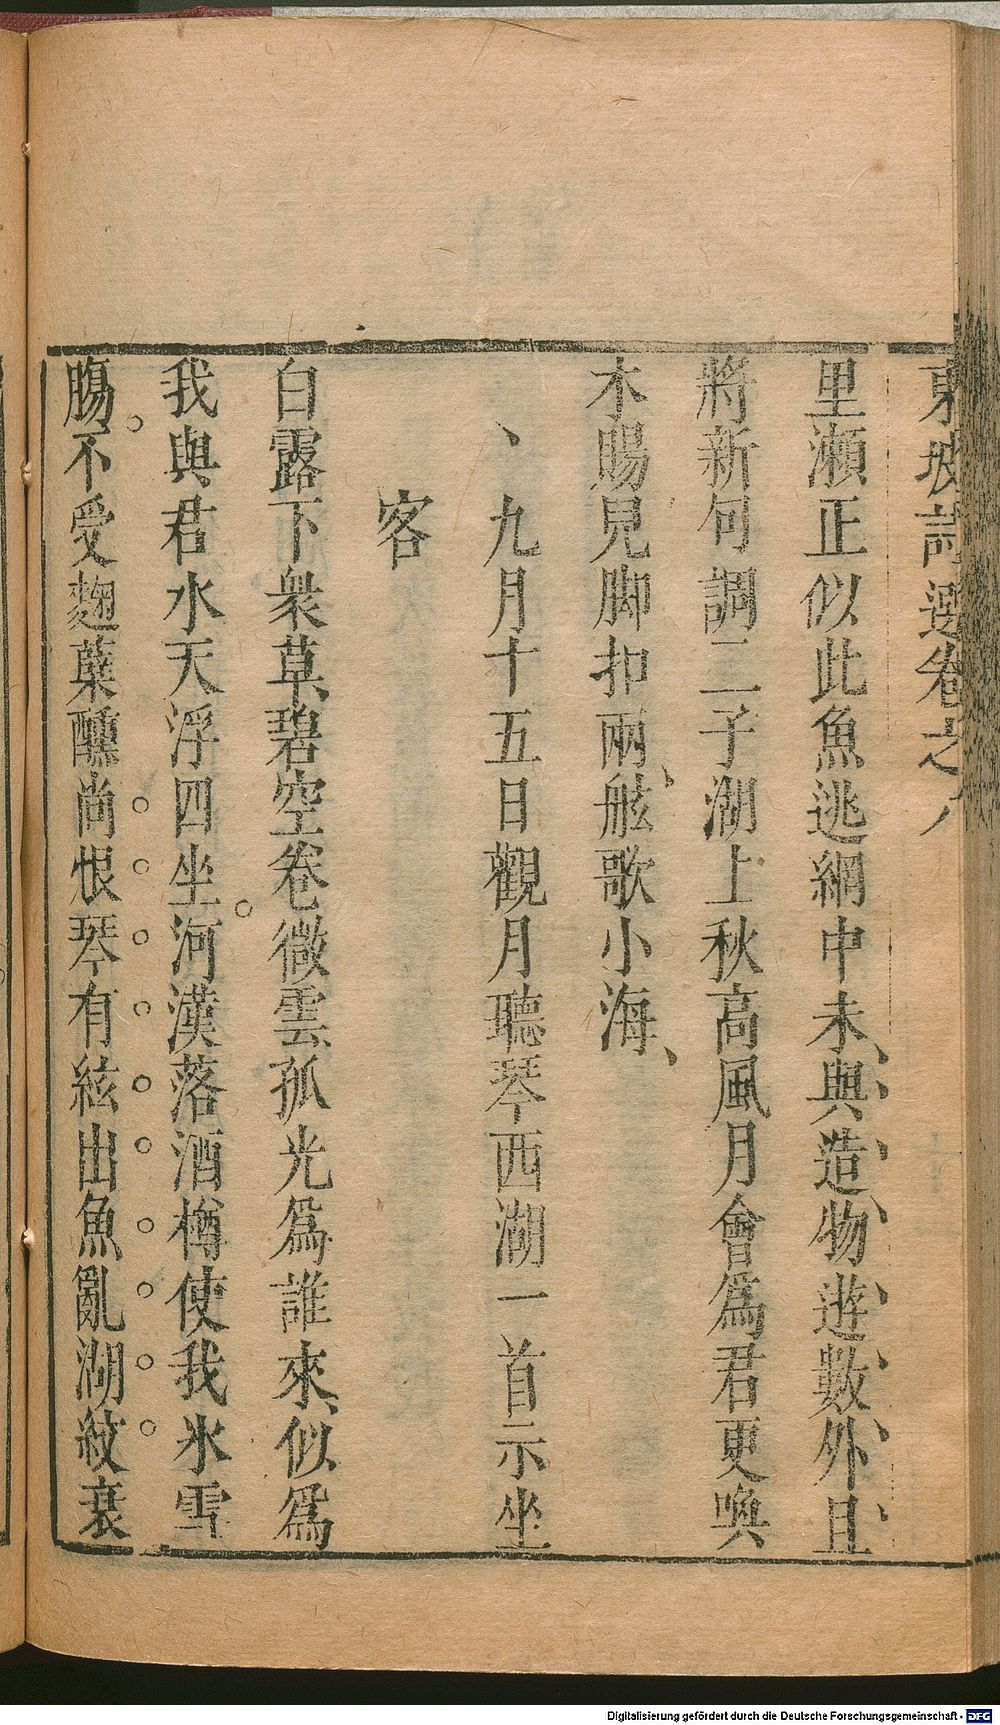 東坡詩選卷之八
里瀨正似此魚逃網中未與造物遊數外且
將新句調二子湖上秋高風月會爲君更喚
木腸兒脚扣兩舷歌小海
、九月十五日觀月聽琴西湖一首示坐
客
白露下衆草碧空卷微雲孤光爲誰來似爲
我與君水天浮四坐河漢落酒樽使我氷雪
腸不受麴蘖醺尚恨琴有絃出魚亂湖紋衰
Digitalisierung gefördert durch die Deutsche Forschungsgemeinschaft - DFG